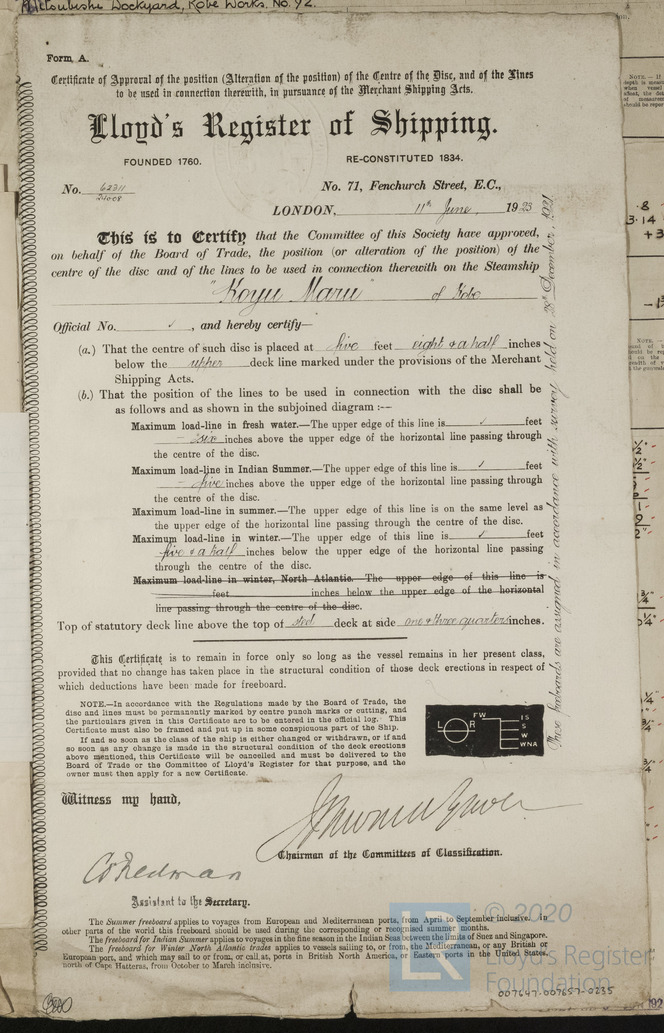 Mitsubishi Dockyard, Kobe Works. No. 92.
Form A.
Certificate of Approval of the position (Alteration of the position) of the Centre of the Disc, and of the Lines
to be used in connection therewith, in pursuance of the Merchant Shipping Acts.
Lloyd's Register of Shipping.
FOUNDED 1760. RE-CONSTITUTED 1834.
No. 62311 No. 71, Fenchurch Street, E.C.,
LONDON, 11th June, 1923
This is to Certify that the Committee of this Society have approved,
on behalf of the Board of Trade, the position (or alteration of the position) of the
centre of the disc and of the lines to be used in connection therewith on the Steamship
"Koyu Maru" of Kobe
Official No. , and hereby certify—
(a.) That the centre of such disc is placed at five feet eight & a half inches
below the upper deck line marked under the provisions of the Merchant
Shipping Acts.
(b.) That the position of the lines to be used in connection with the disc shall be
as follows and as shown in the subjoined diagram :--
Maximum load-line in fresh water.—The upper edge of this line is feet
- six inches above the upper edge of the horizontal line passing through
the centre of the disc.
Maximum load-line in Indian Summer.—The upper edge of this line is feet
- five inches above the upper edge of the horizontal line passing through
the centre of the disc.
Maximum load-line in summer.—The upper edge of this line is on the same level as
the upper edge of the horizontal line passing through the centre of the disc.
Maximum load-line in winter.—The upper edge of this line is feet
five & a half inches below the upper edge of the horizontal line passing
through the centre of the disc.
Maximum load-line in winter, North Atlantic.—The upper edge of this line is
feet inches below the upper edge of the horizontal
line passing through the centre of the disc.
Top of statutory deck line above the top of stl deck at side one & three quarters inches.
These freeboards are assigned in accordance with survey held on 28th December, 1921
This Certificate is to remain in force only so long as the vessel remains in her present class,
provided that no change has taken place in the structural condition of those deck erections in respect of
which deductions have been made for freeboard.
NOTE.—In accordance with the Regulations made by the Board of Trade, the
disc and lines must be permanently marked by centre punch marks or cutting, and
the particulars given in this Certificate are to be entered in the official log. This
Certificate must also be framed and put up in some conspicuous part of the Ship.
If and so soon as the class of the ship is either changed or withdrawn, or if and
so soon as any change is made in the structural condition of the deck erections
above mentioned, this Certificate will be cancelled and must be delivered to the
Board of Trade or the Committee of Lloyd's Register for that purpose, and the
owner must then apply for a new Certificate.
L R FW IS S W WNA
Witness my hand,
Chairman of the Committees of Classification.
Assistant to the Secretary.
The Summer freeboard applies to voyages from European and Mediterranean ports, from April to September inclusive. In
other parts of the world this freeboard should be used during the corresponding or recognised summer months.
The freeboard for Indian Summer applies to voyages in the fine season in the Indian Seas between the limits of Suez and Singapore.
The freeboard for Winter North Atlantic trades applies to vessels sailing to, or from, the Mediterranean, or any British or
European port, and which may sail to or from, or call at, ports in British North America, or Eastern ports in the United States,
north of Cape Hatteras, from October to March inclusive.
© 2020
Lloyd's Register
Foundation
007647-007657-0235